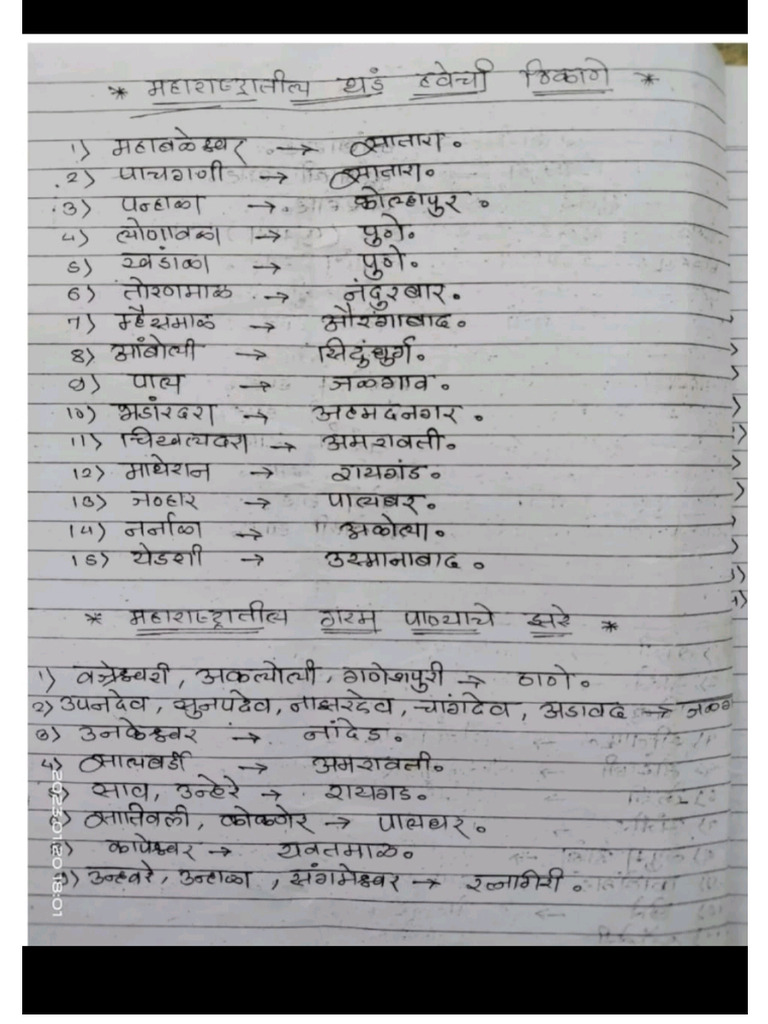 * महाराष्ट्रातील थडं हवेची ठिकाणे *
1) महाबळेश्वर → सातारा.
2) पाचगणी → सातारा.
3) पन्हाळा → कोल्हापुर.
4) लोणावळा → पुणे.
5) खंडाळा → पुणे.
6) तोरणमाळ → नंदुरबार.
7) म्हैसमाळ → औरंगाबाद.
8) आंबोली → सिदुंधुर्ग.
9) पाल → जळगाव.
10) भडांरदरा → अहमदनगर.
11) चिखलदरा → अमरावती.
12) माथेरान → रायगंड.
13) जव्हार → पालघर.
14) नर्नाळा → अकोला.
15) येडशी → उस्मानाबाद.
* महाराष्ट्रातील गरम पाण्याचे झरे *
1) वज्रेश्वरी, अकलोली, गणेशपुरी → ठाणे.
2) उपनदेव, सुनपदेव, नाझरदेव, चांगदेव, अडावद → जळग
3) उनकेश्वर → नांदेड.
4) सालबर्डी → अमरावती.
5) साव, उन्हेरे → रायगड.
) सातिवली, कोकणेर → पालघर.
) कापेश्वर → यवतमाळ.
) उन्हवरे, उन्हाळा, संगमेश्वर → रत्नागिरी.
2023.01.20 18:01